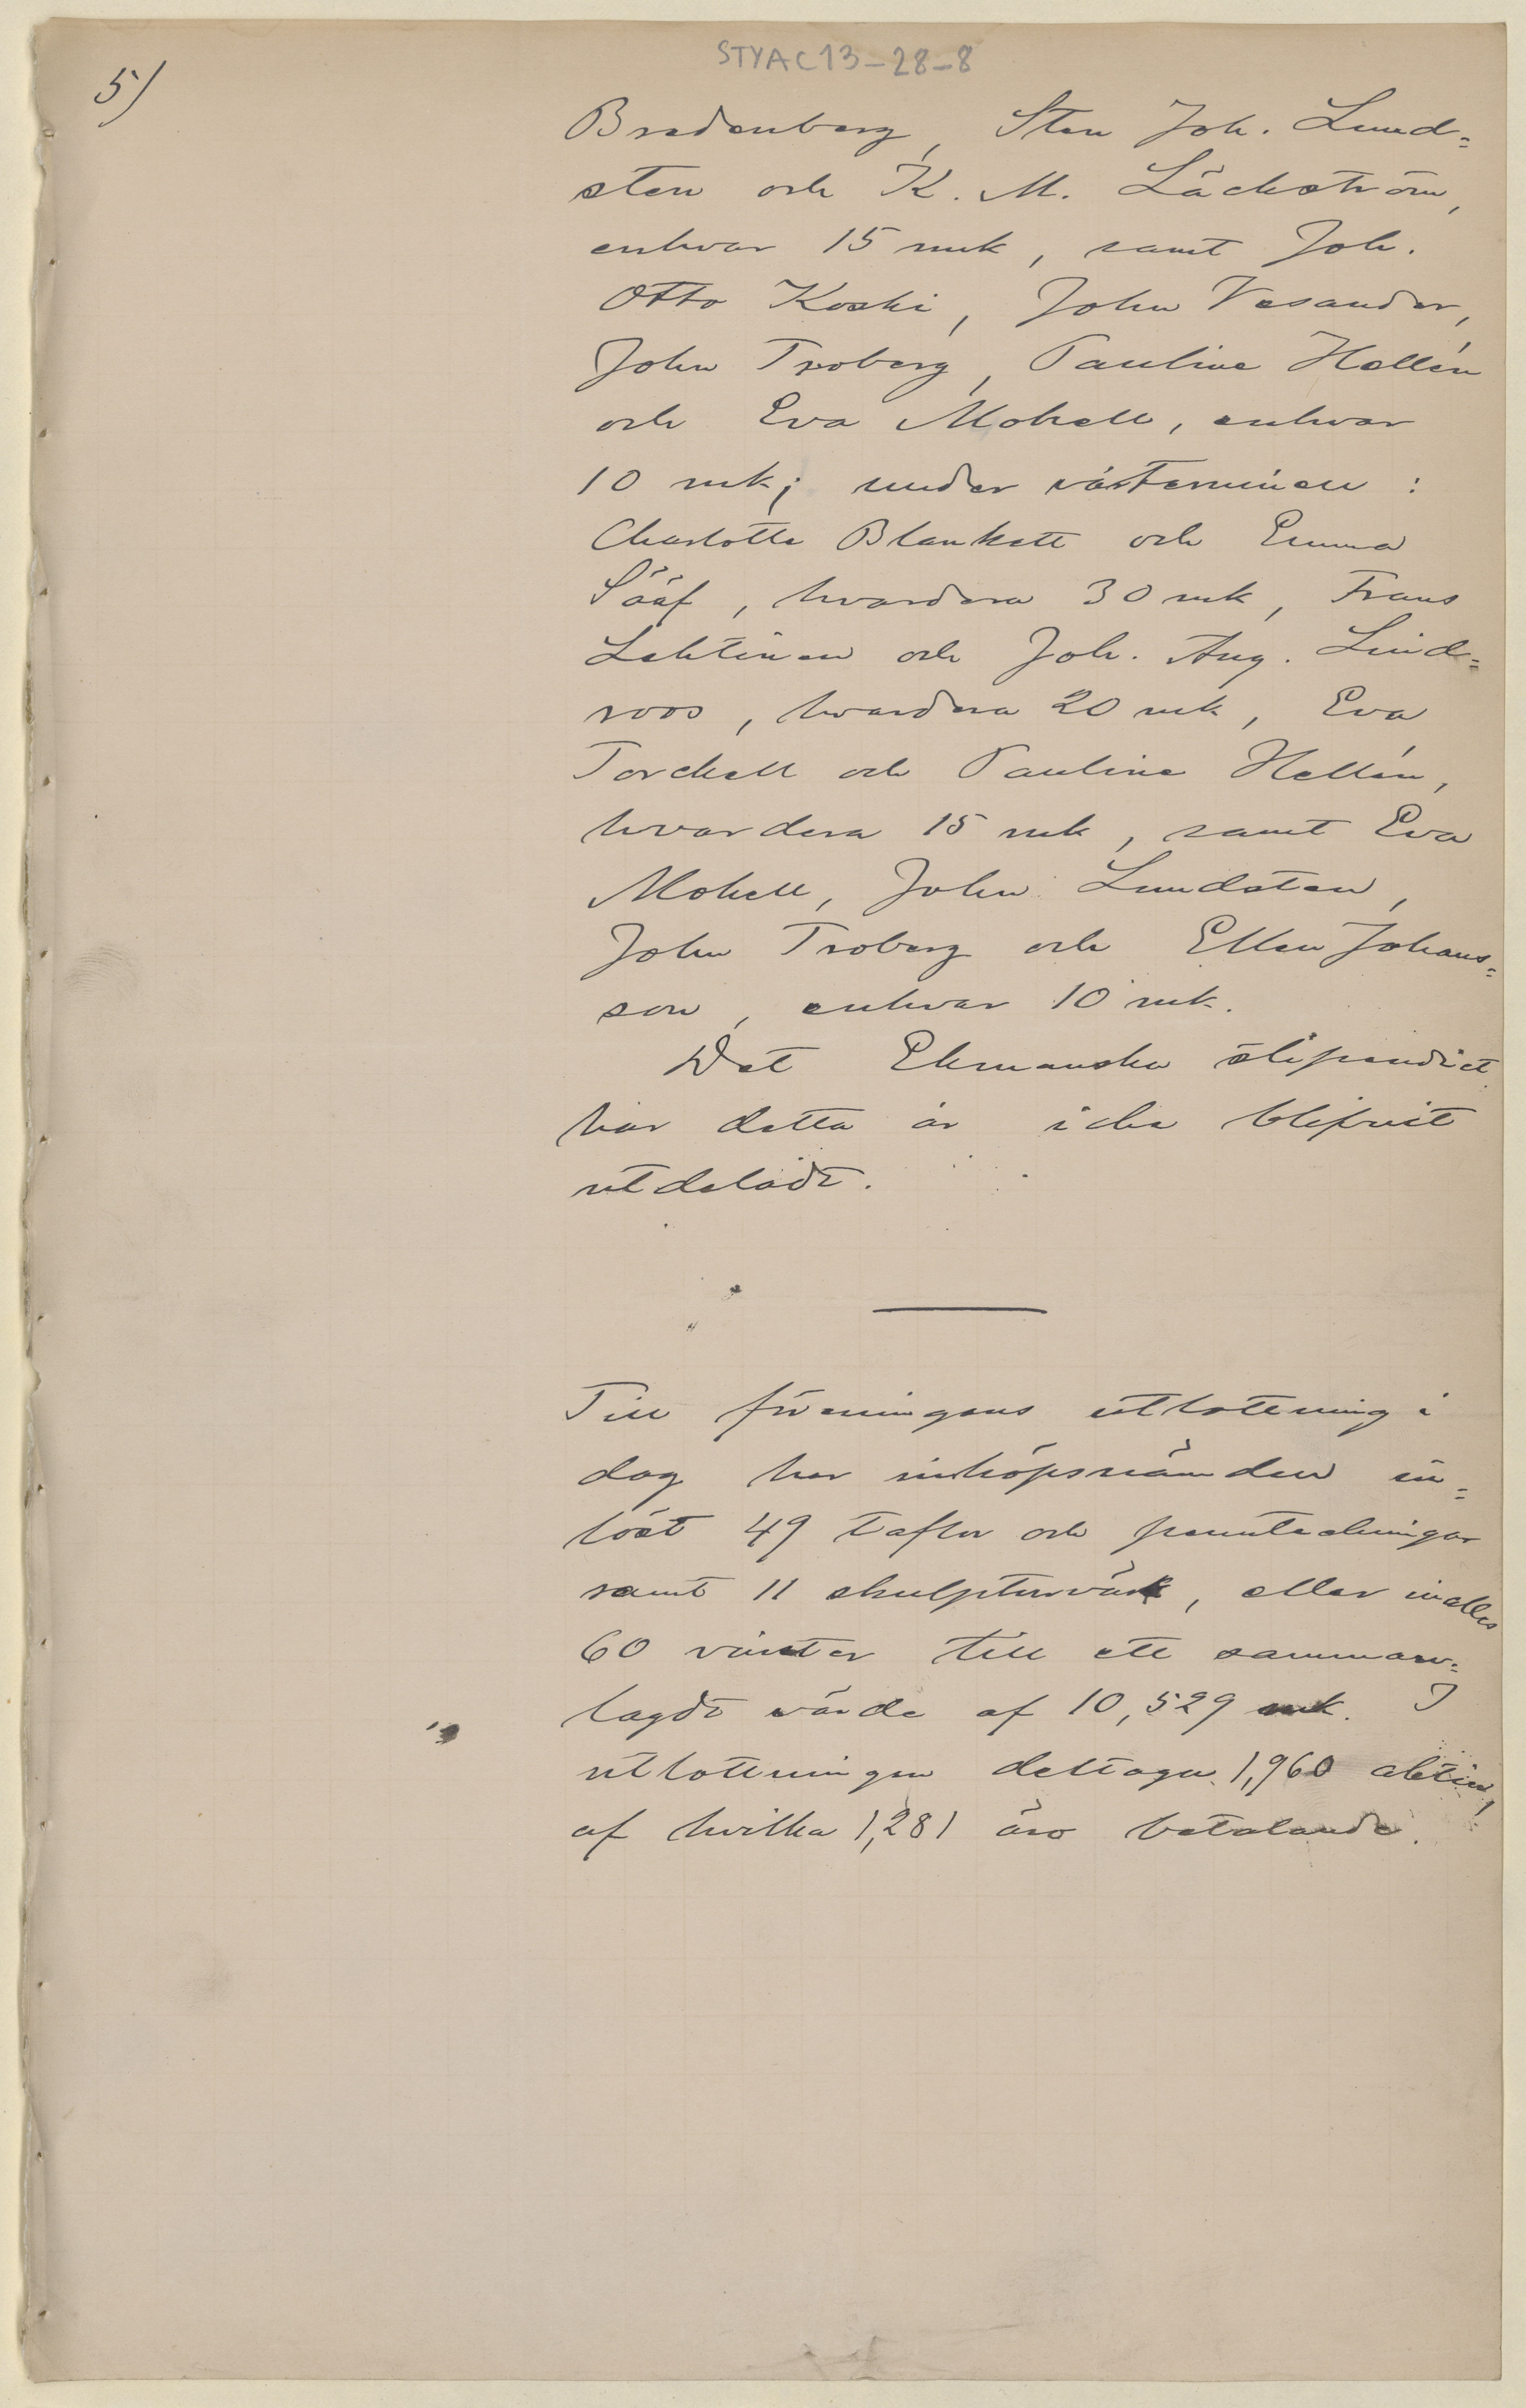 STYAC13-28-8
5)
Bredenberg, Sten Joh. Lund=
sten och K. M. Läckström,
enhvar 15 mk, samt Joh.
Otto Koski, John Vesander,
John Troberg, Pauline Hellén
och Eva Mohell, enhvar
10 mk; under vårterminen :
Charlotte Blankett och Emma
Sääf, hvardera 30 mk, Frans
Lehtinen och Joh. Aug. Lind=
roos, hvardera 20 mk, Eva
Torckell och Pauline Hellén,
hvardera 15 mk, samt Eva
Mohell, John Lundsten,
John Troberg och Ellen Johans=
son, enhvar 10 mk.
Det Ekmanska stipendiet
har detta år icke blifvit
utdeladt.
Till föreningens utlottning i
dag har inköpsnämden in=
löst 49 taflor och penntechningar
samt 11 skulpturvärk, eller inalles
60 vinster till ett samman=
lagdt värde af 10,529 mk. I
utlottningen deltaga 1,960 aktier,
af hvilka 1,281 äro betalande.